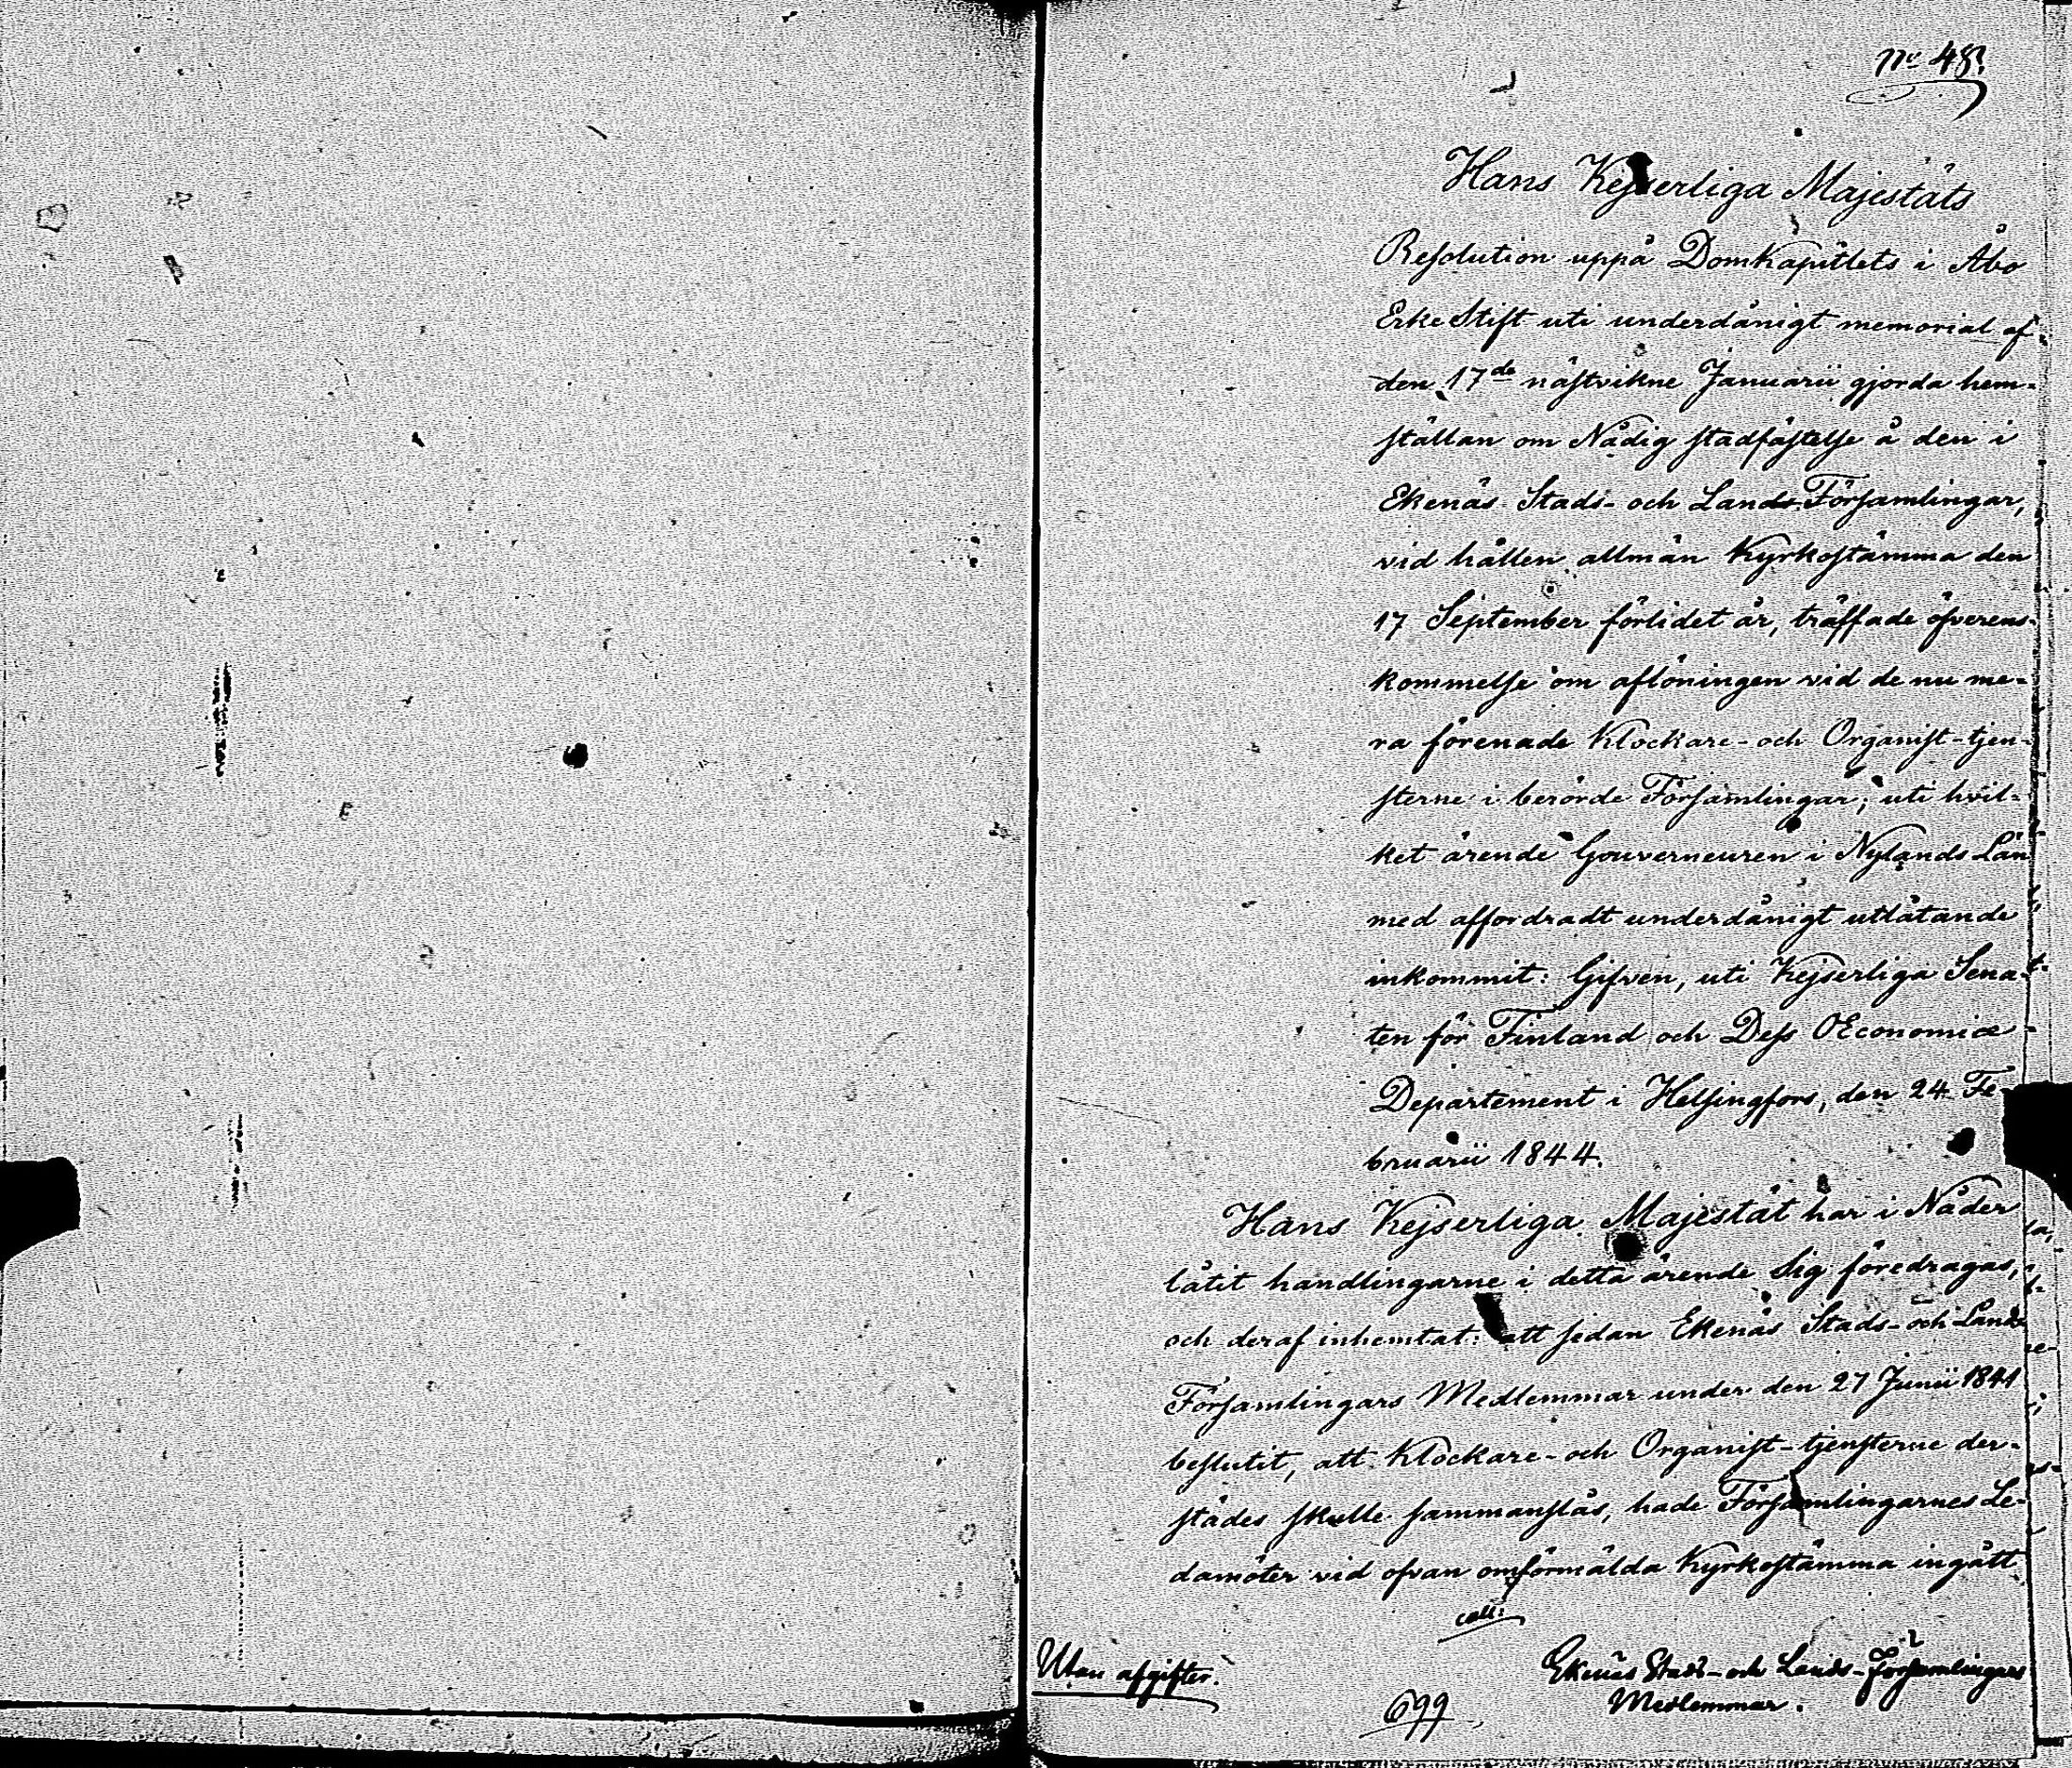 No 48.
Hans Kejserliga Majestäts
Resolution uppå Domkapitlets i Åbo
ErkeStift uti underdånigt memorial af
den 17de nästvikne Januarii gjorda hem-
ställan om Nådig stadfästelse å den i
Ekenäs Stads- och Lands-Församlingar,
vid hållen allmän Kyrkostämma den
17 September förlidet år, träffade öfverens-
kommelse om aflöningen vid de nu me-
ra förenade Klockare- och Organist-tjen-
sterne i berörde Församlingar; uti hvil-
ket ärende Gouverneuren i Nylands Län
med affordradt underdånigt utlåtande
inkommit: Gifven, uti Kejserliga Sena-
ten för Finland och Dess OEconomiæ
Departement i Helsingfors, den 24 Fe-
bruarii 1844.
Hans Kejserliga Majestät har i Nåder
låtit handlingarne i detta ärende Sig föredragas,
och deraf inhemtat: att sedan Ekenäs Stads- och Lands
Församlingars Medlemmar under den 27 Junii 1841
beslutit, att Klockare- och Organist-tjensterne der-
städes skulle sammanslås, hade Församlingarnes Le-
damöter vid ofvan omförmälda Kyrkostämma ingått
coll.
Utan afgifter.
Ekenäs Stads- och Lands-Församlingars
Medlemmar.
699